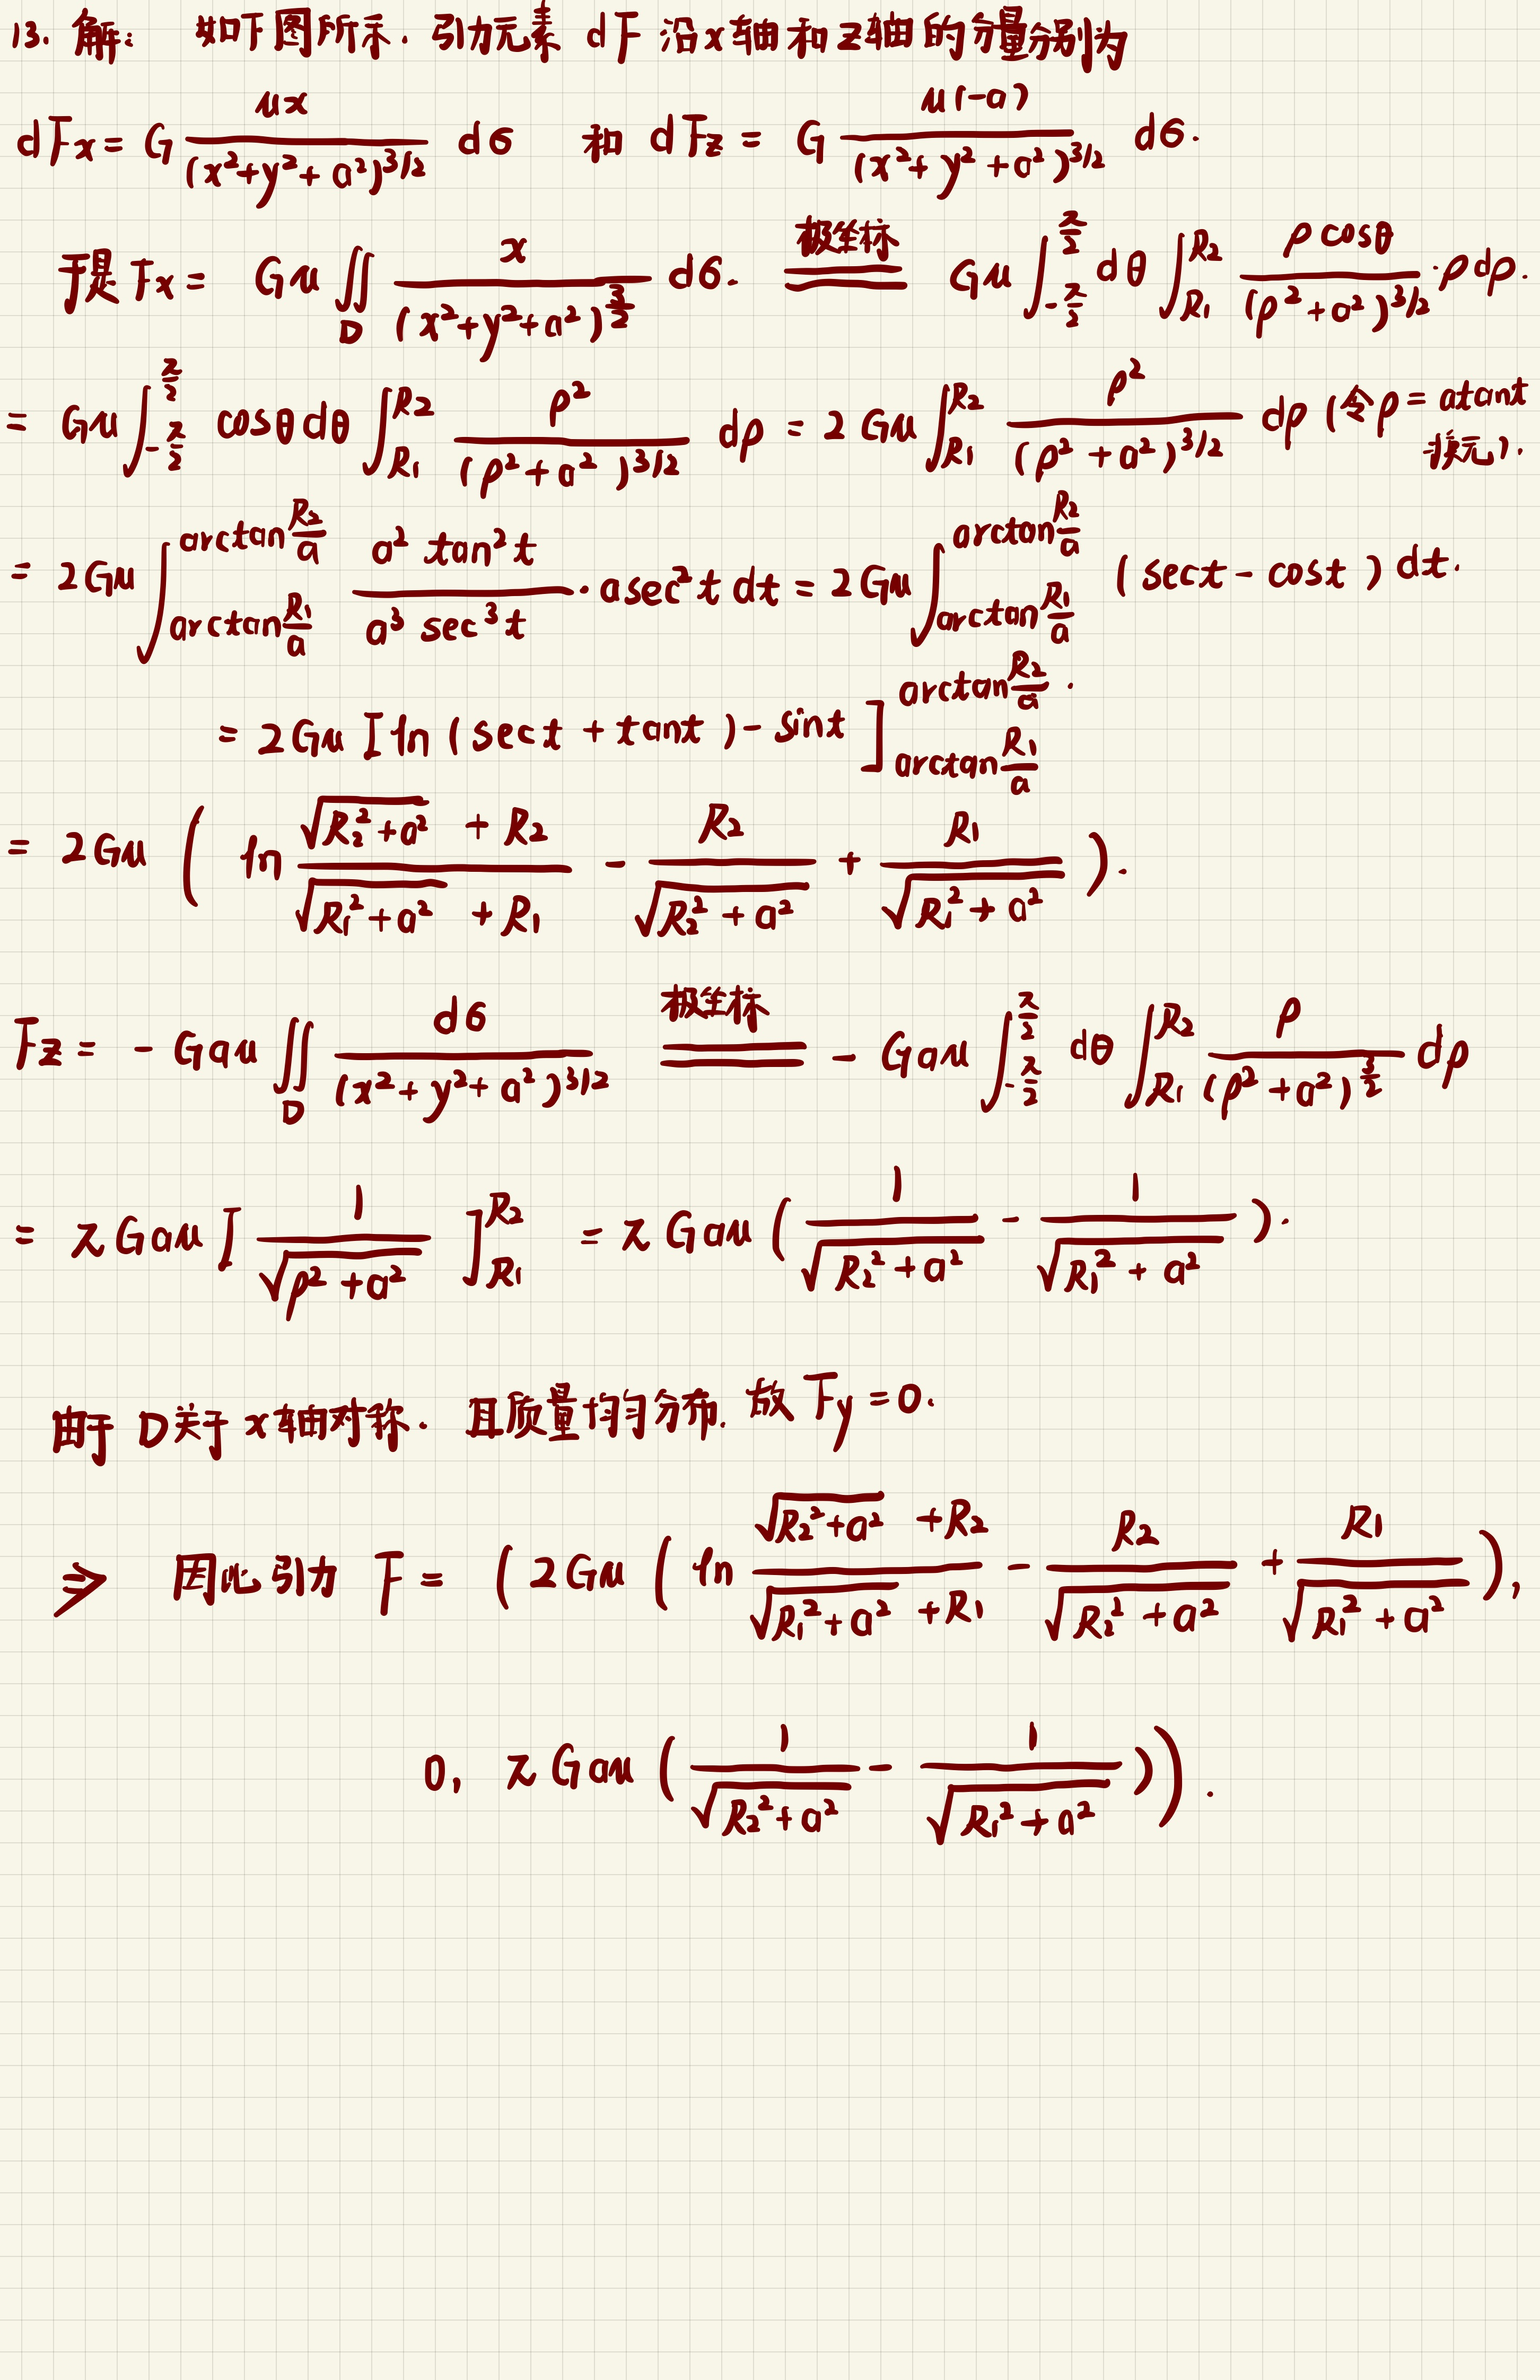 13. 解: 如下图所示. 引力元素 dF 沿x轴和z轴的分量分别为
dFx = G ux/(x²+y²+a²)^3/2 dσ 和 dFz = G u(-a)/(x²+y²+a²)^3/2 dσ.
于是 Fx = Gu∬_D x/(x²+y²+a²)^(3/2) dσ. 极坐标 == Gu∫_{-π/2}^{π/2} dθ ∫_{R₁}^{R₂} ρcosθ/(ρ²+a²)^3/2 · ρdρ.
= Gu∫_{-π/2}^{π/2} cosθdθ ∫_{R₁}^{R₂} ρ²/(ρ²+a²)^3/2 dρ = 2Gu∫_{R₁}^{R₂} ρ²/(ρ²+a²)^3/2 dρ (令ρ = atant 换元).
= 2Gu∫_{arctan R₁/a}^{arctan R₂/a} a² tan²t/(a³ sec³t) · asec²t dt = 2Gu∫_{arctan R₁/a}^{arctan R₂/a} (sect - cost) dt.
= 2Gu[ln(sect + tant) - sint]_{arctan R₁/a}^{arctan R₂/a}.
= 2Gu( ln (√(R₂²+a²) + R₂)/(√(R₁²+a²) + R₁) - R₂/√(R₂²+a²) + R₁/√(R₁²+a²) ).
Fz = -Gau∬_D dσ/(x²+y²+a²)^3/2 极坐标 == -Gau∫_{-π/2}^{π/2} dθ ∫_{R₁}^{R₂} ρ/(ρ²+a²)^(3/2) dρ
= πGau[1/√(ρ²+a²)]_{R₁}^{R₂} = πGau(1/√(R₂²+a²) - 1/√(R₁²+a²)).
由于 D关于x轴对称. 且质量均匀分布. 故 Fy = 0.
⇒ 因此引力 F = (2Gu( ln (√(R₂²+a²) + R₂)/(√(R₁²+a²) + R₁) - R₂/√(R₂²+a²) + R₁/√(R₁²+a²) ),
0, πGau(1/√(R₂²+a²) - 1/√(R₁²+a²))).